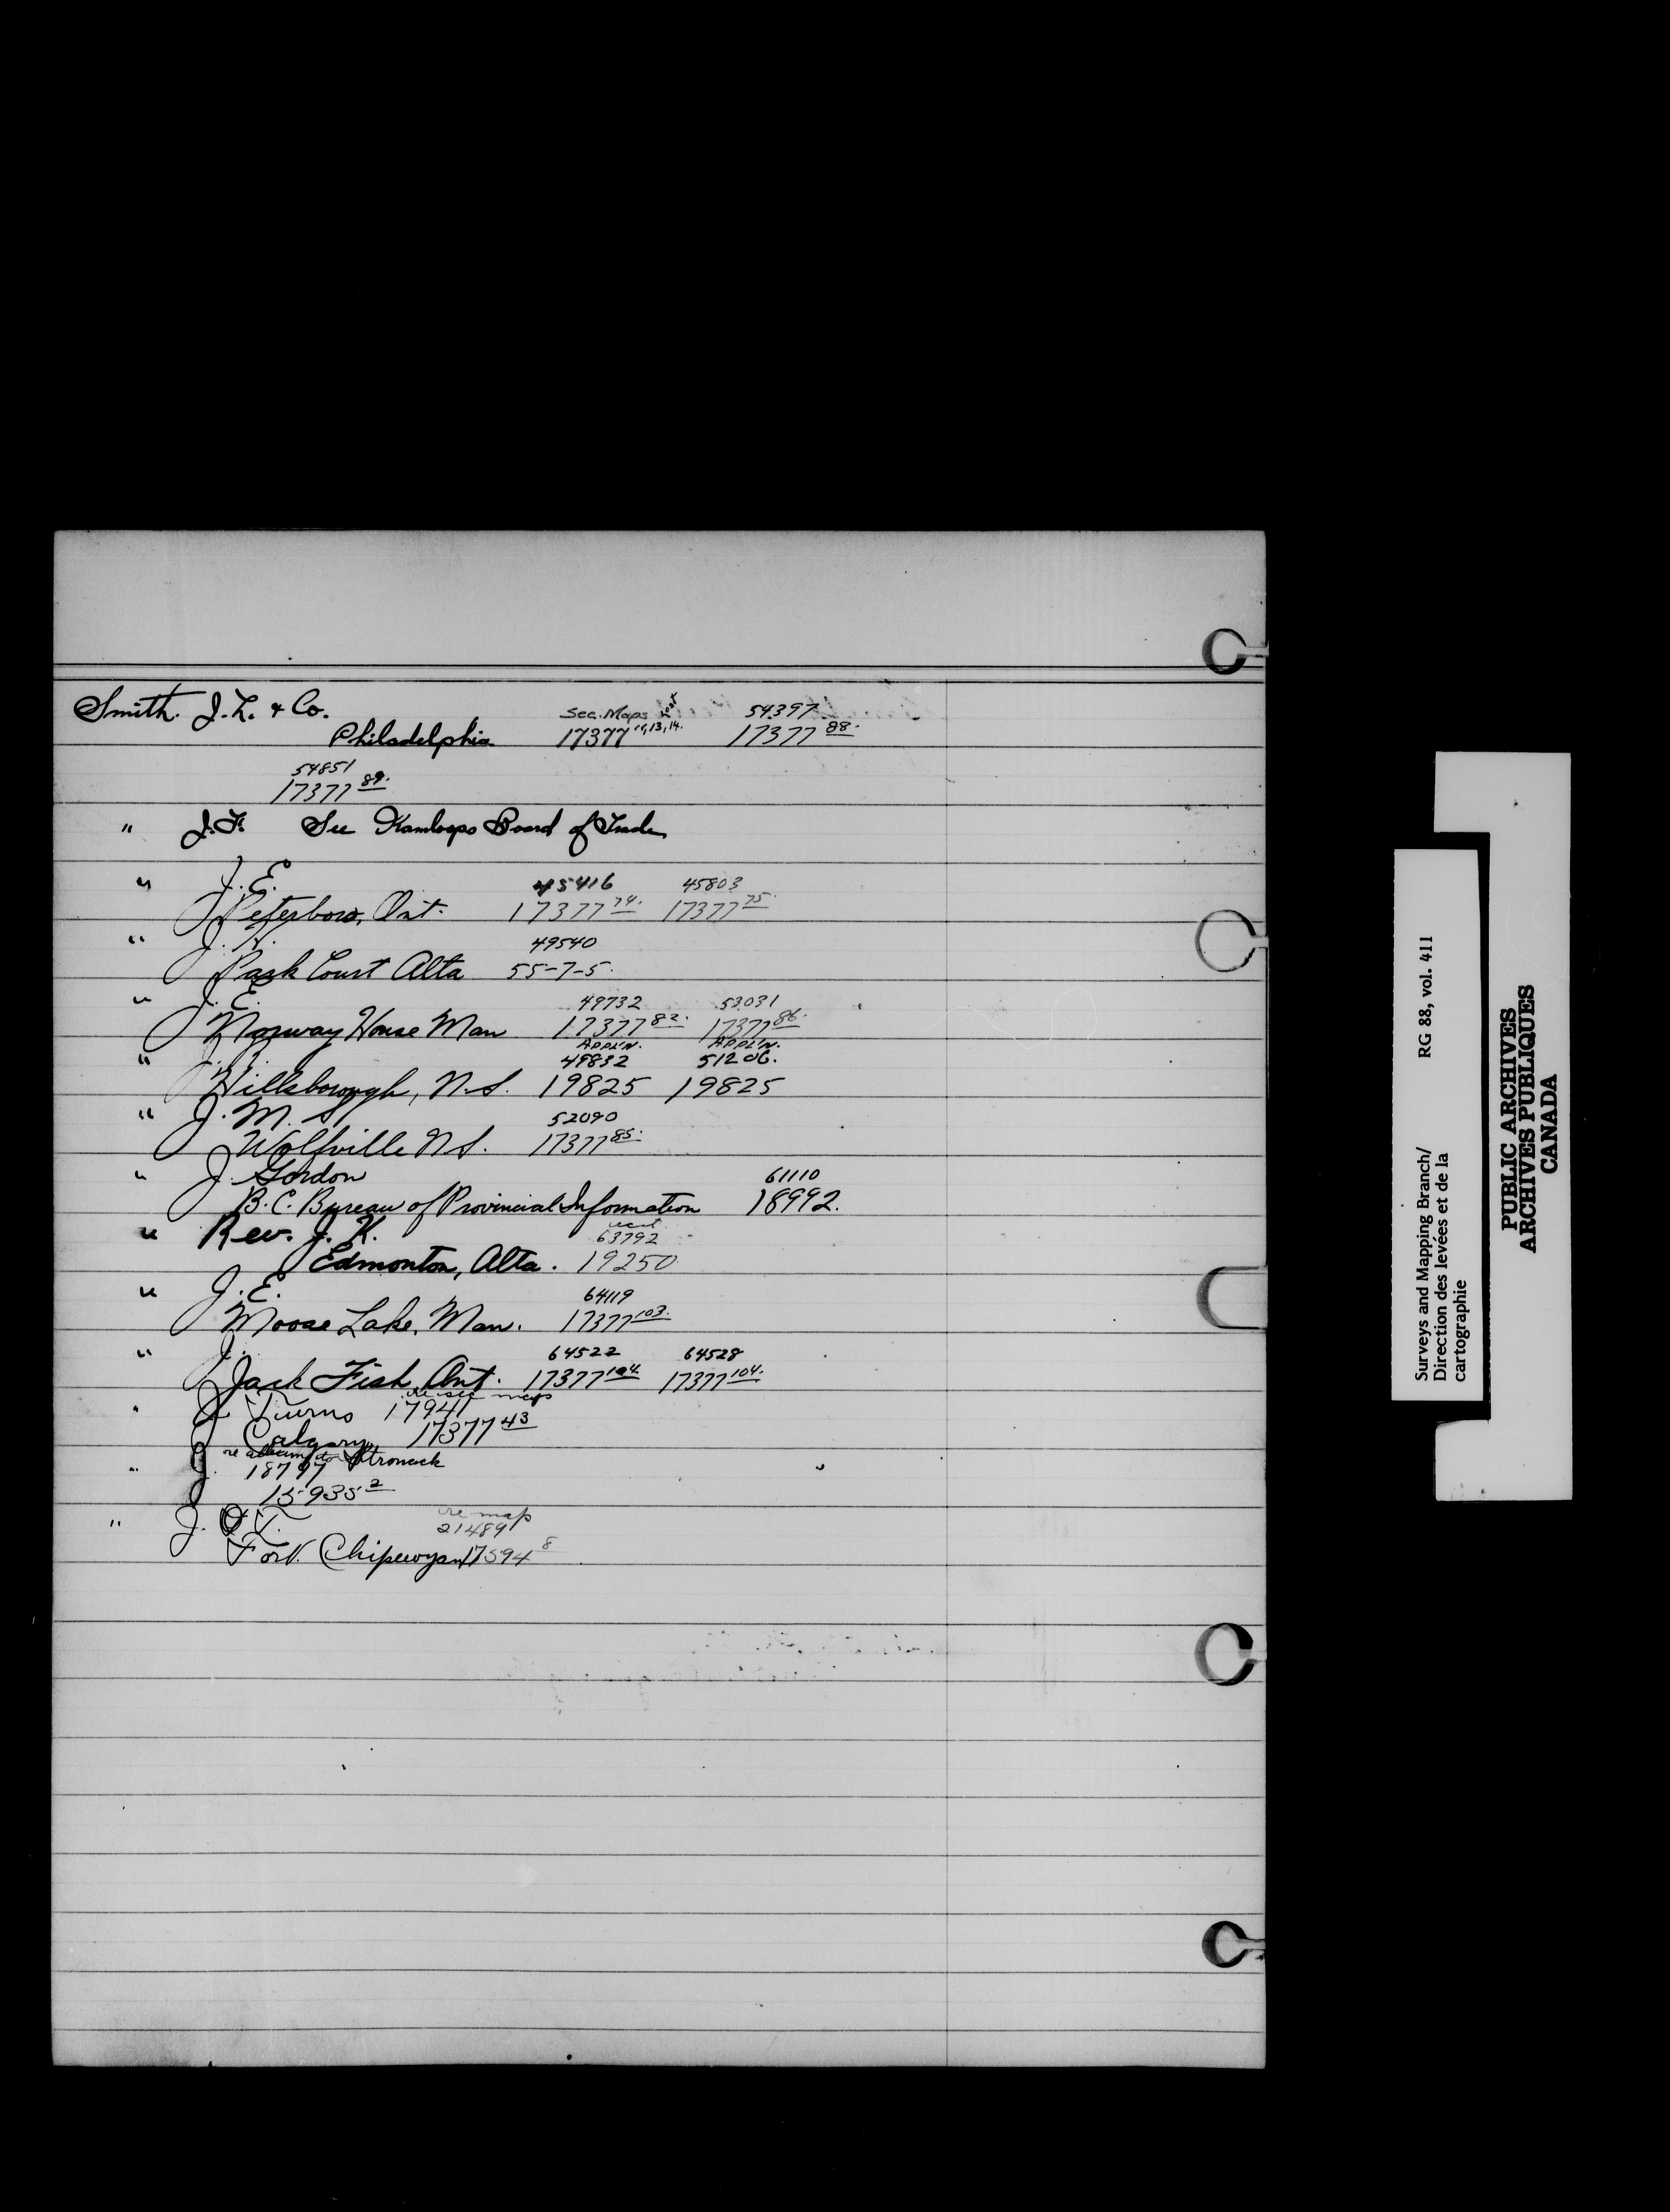 Smith. J. L. & Co.
Sec. Maps 54397
Philadelphia 17377 11, 13, 14. 17377 88.
54851
17377 89.
" J. F. See Kamloops Board of Trade
" J. E. 45416 45803
Peterboro, Ont. 17377 74. 17377 75.
" J. H. 49540
Park Court Alta 55-7-5.
" J. E. 49732 53031
Norway House Man 17377 82. 17377 86.
Appl'n. Appl'n.
" J. 49832 51206.
Hillsborough, N.S. 19825 19825
" J. M. 52090
Wolfville N.S. 17377 85.
" J. Gordon 61110
B. C. Bureau of Provincial Information 18992.
" Rev. J. K. 63792
Edmonton, Alta. 19250
" J. E. 64119
Moose Lake, Man. 17377 103.
" J. 64522 64528
Jack Fish, Ont. 17377 104. 17377 104.
re sec maps
" J 17941
Calgary 17377 43
" J. 18797
15935 2
re map
" J. 21489
Fort Chipewyan 17594 8
Surveys and Mapping Branch/
Direction des levées et de la
cartographie
RG 88, vol. 411
PUBLIC ARCHIVES
ARCHIVES PUBLIQUES
CANADA